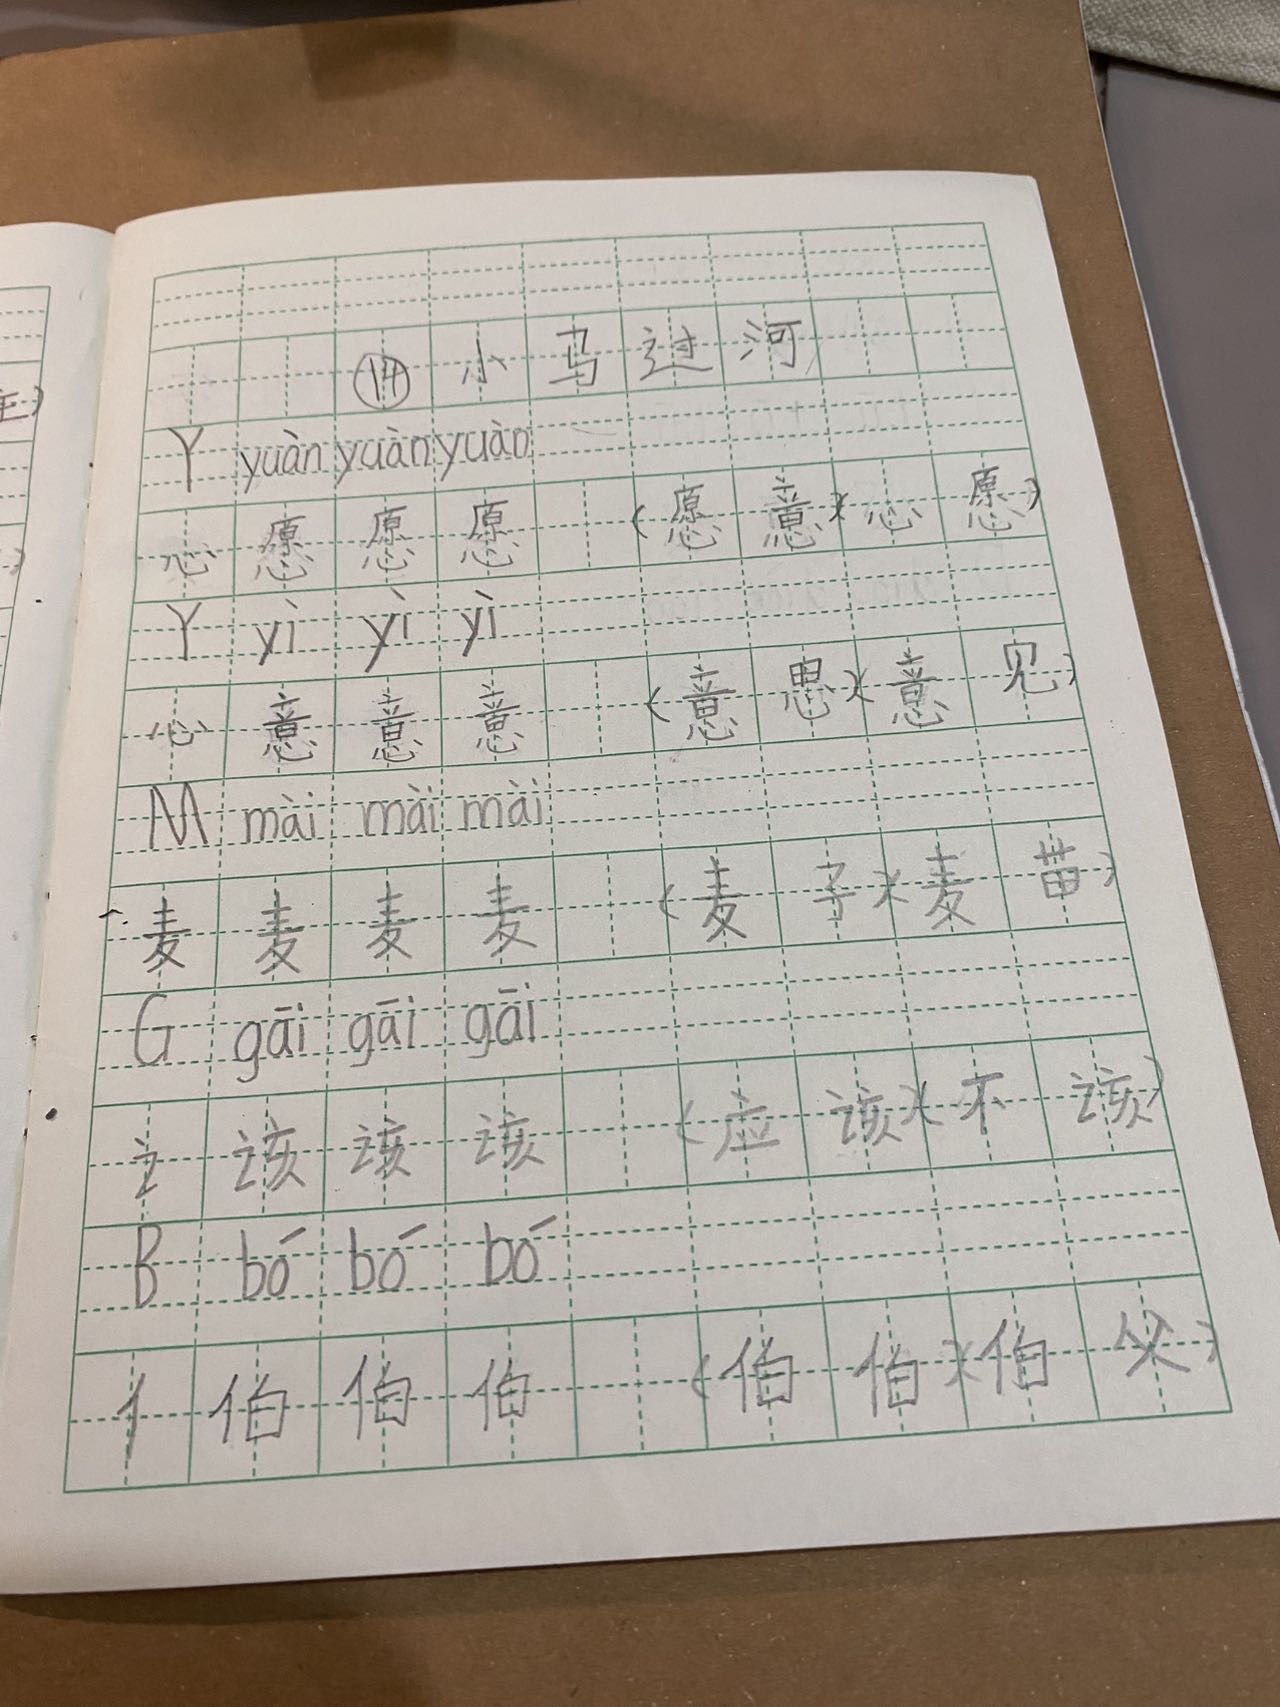 ⑭小马过河
Y yuàn yuàn yuàn
心 愿 愿 愿 (愿意)(心愿)
Y yì yì yì
心 意 意 意 (意思)(意见)
M mài mài mài
麦 麦 麦 麦 (麦子)(麦苗)
G gāi gāi gāi
讠 该 该 该 (应该)(不该)
B bó bó bó
亻 伯 伯 伯 (伯伯)(伯父)